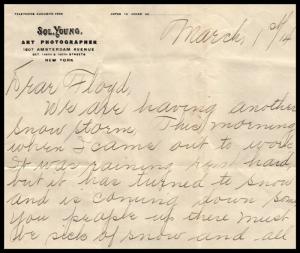 Sol. Young,
ART PHOTOGRAPHER
1607 AMSTERDAM AVENUE
NEW YORK
March, 1st/14
Dear Floyd,
We are having another
snow storm. This morning
when I came out to work
it was raining real hard
but it has turned to snow
and is coming down some
You people up there must
be sick of snow and all